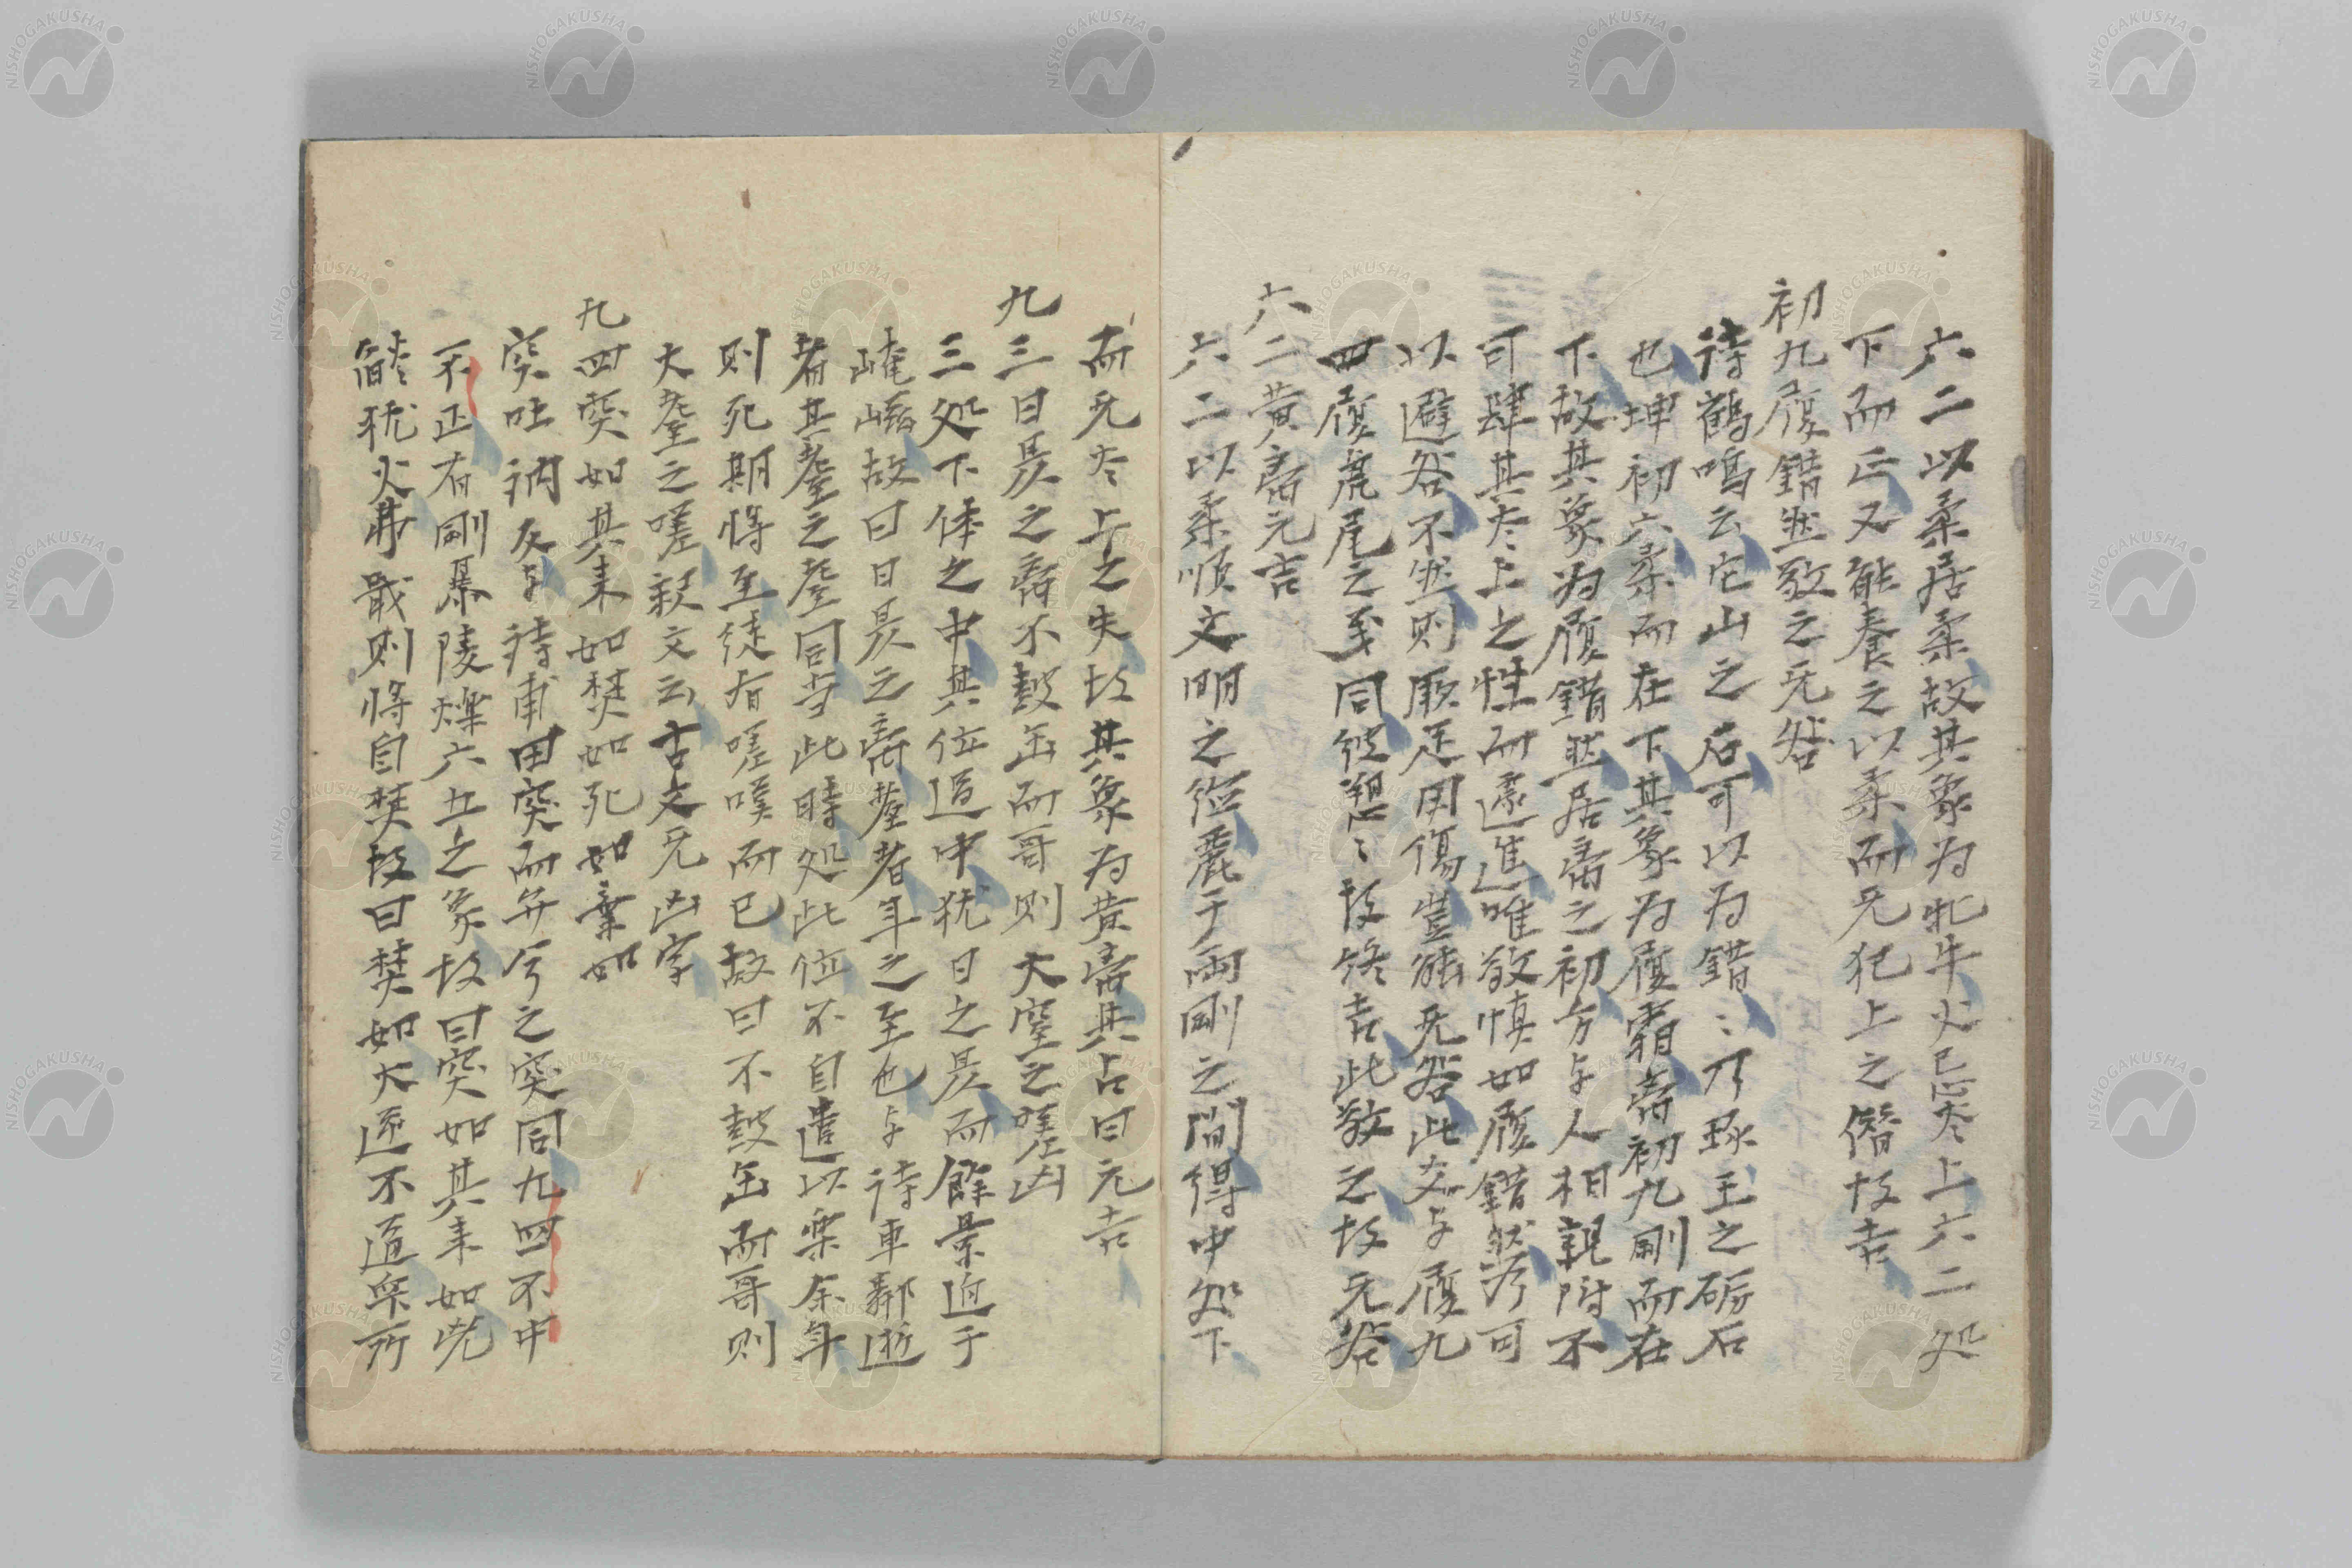 六二以柔居柔故其象为牝牛火已炎上六二処
下而正又能養之以柔而无犯上之僭故吉
初九履錯然敬之无咎
待鶴鳴云它山之石可以为錯〻乃琢玉之砺石
也坤初六柔而在下其象为履霜离初九剛而在
下故其象为履錯然居离之初方与人相親附不
可肆其炎上之性而遽進唯敬慎如履錯然庶可
以避咎不然則厥足用傷豈能无咎此爻与履九
四履虎尾之義同彼愬〻故終吉此敬之故无咎
六二黄离元吉
六二以柔順文明之徳麗于両剛之間得中処下
而无炎上之失故其象为黄离其占曰元吉
九三日昃之离不鼓缶而哥則大耋之嗟凶
三処下体之中其位過中犹日之昃而餘景迫于
崦嵫故曰日昃之离耋者年之至也与待車鄰逝
者其耋之耋同当此時処此位不自遣以楽余年
則死期将至徒有嗟嘆而已故曰不鼓缶而哥則
大耋之嗟釈文云古文无凶字
九四突如其来如焚如死如棄如
突吐訥反与待甫田突而弁兮之突同九四不中
不正有剛暴陵爍六五之象故曰突如其来如然
犹火弗戢則将自焚故曰焚如大逆不道罪所